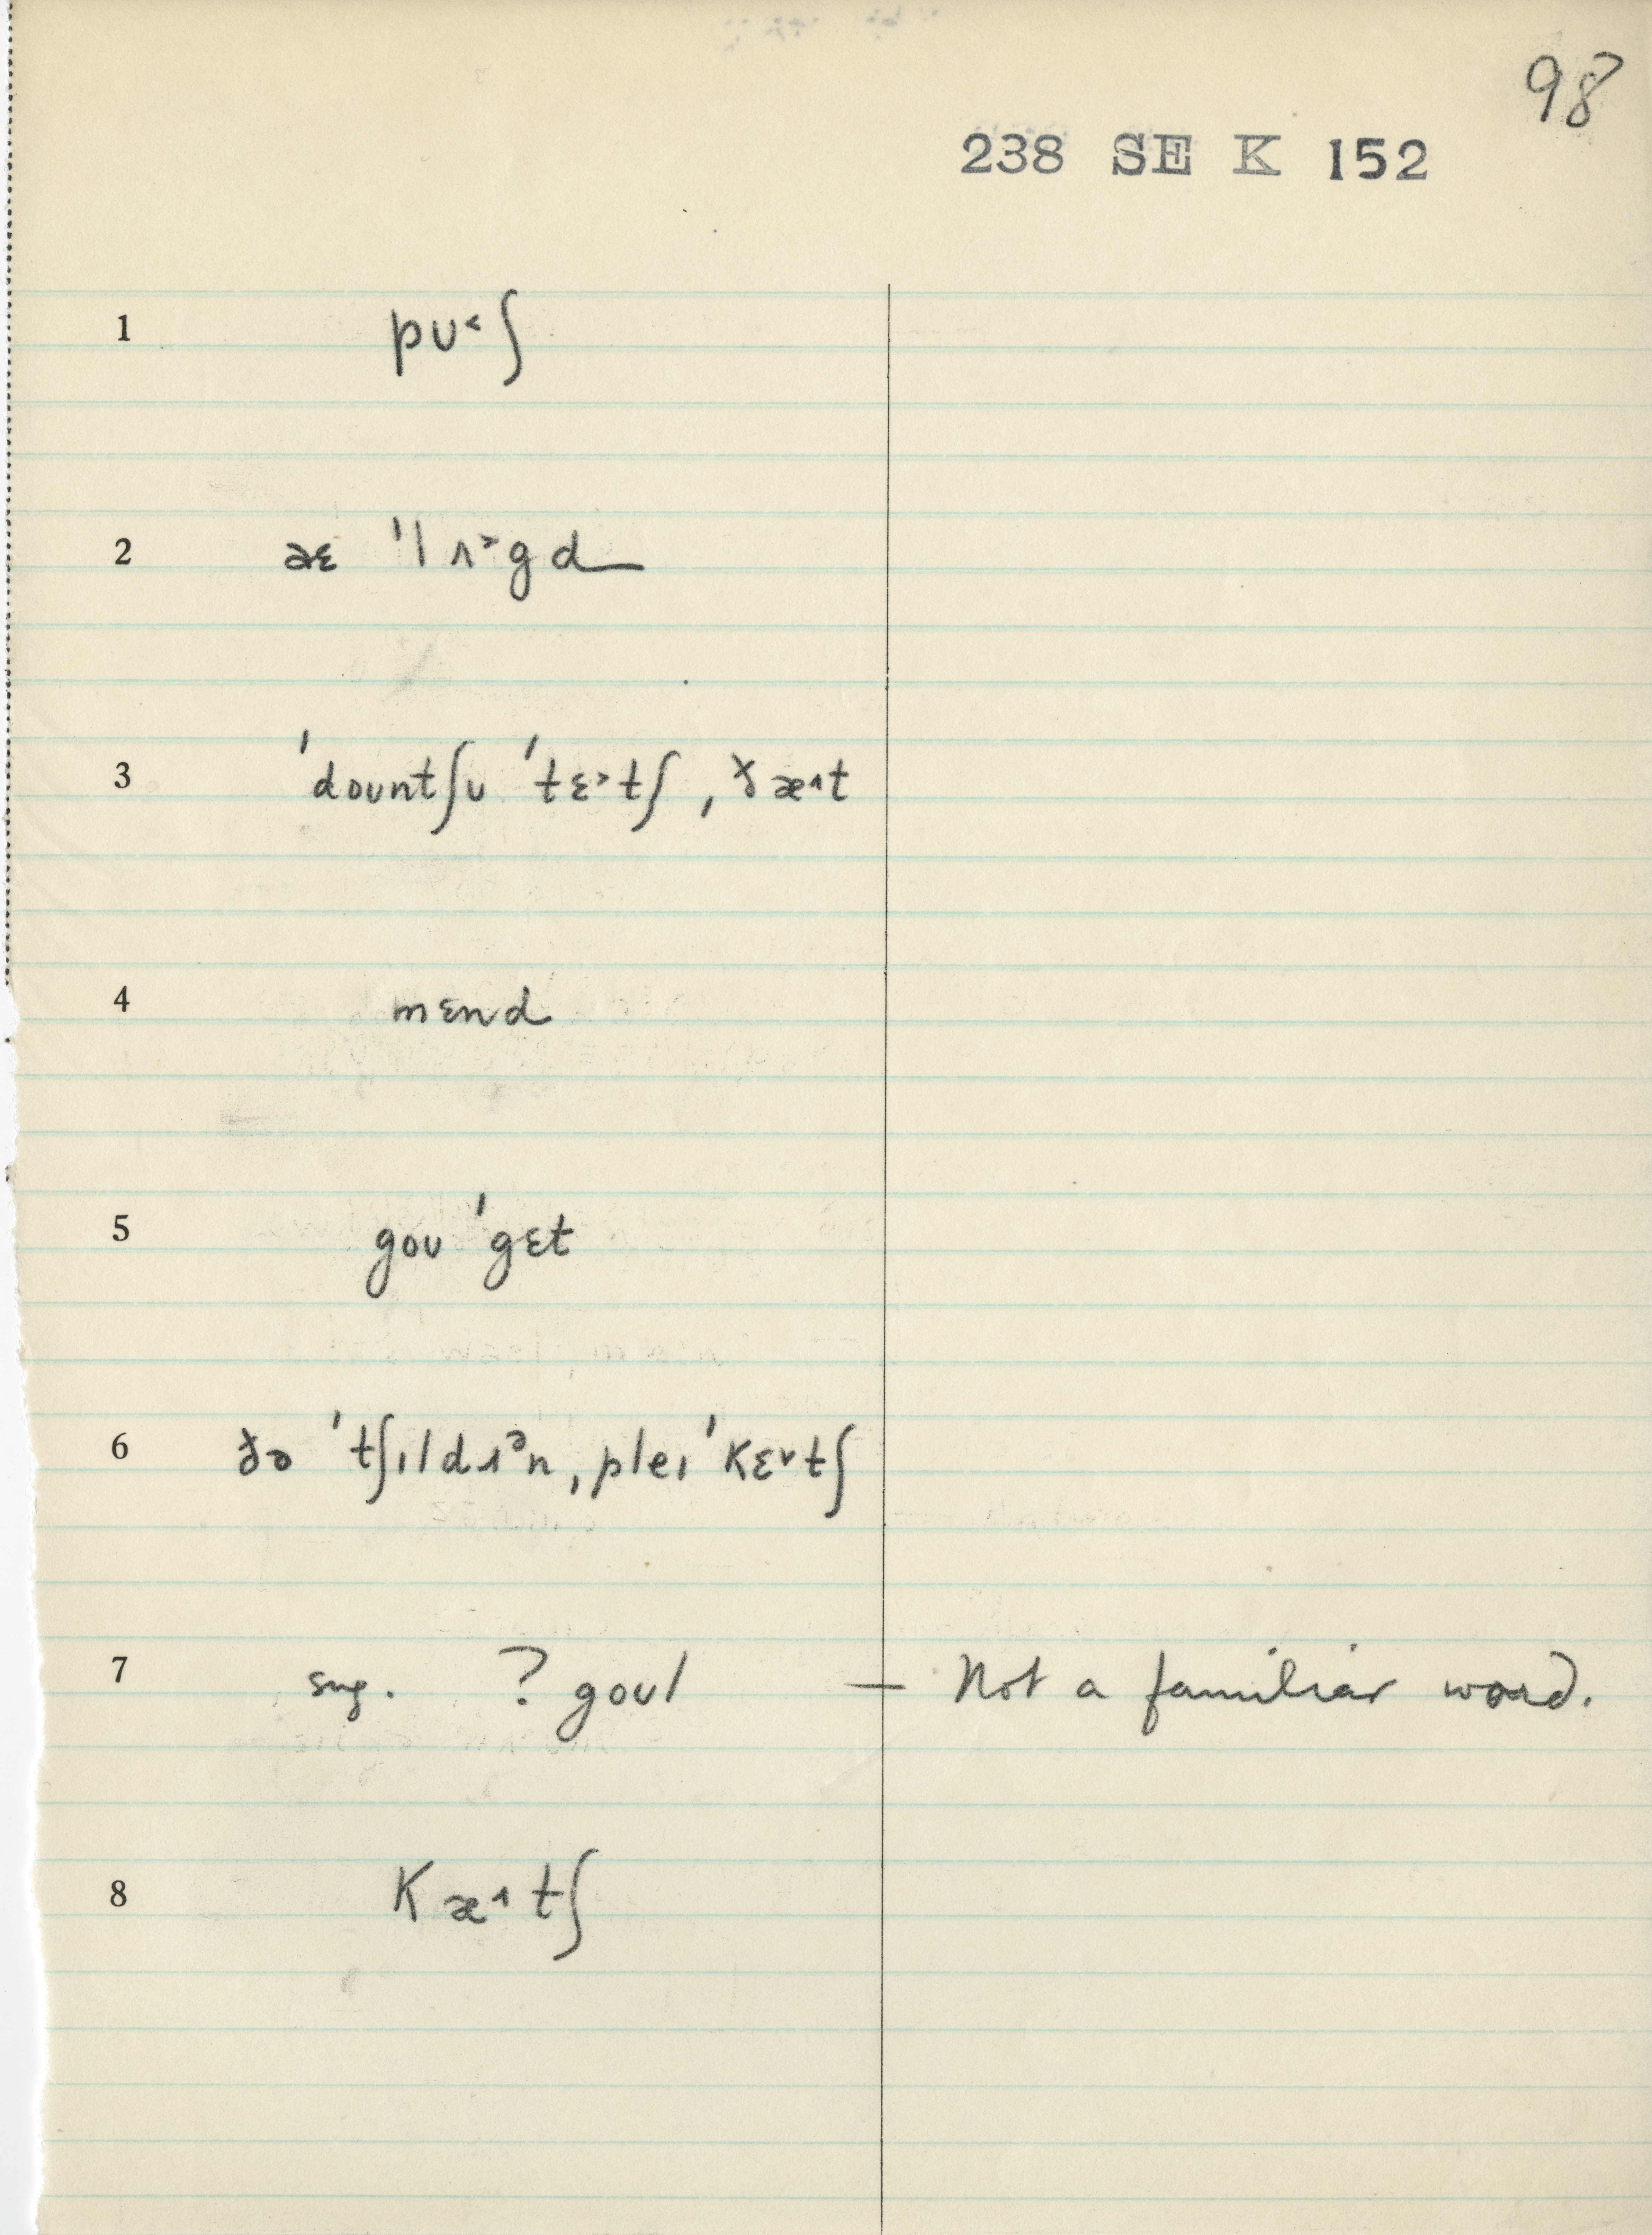 98
238 SE K 152
1 pʊ˂ʃ
2 æɛ ˈlʌ˃gd
3 ˈdoʊntʃʊ ˈtɛ˃tʃ ˌðæ˄t
4 mɛnd
5 goʊ ˈgɛt
6 ðə ˈtʃɪldɹᵊn ˌpleɪ ˈkɛ˅tʃ
7 sug. ? goʊl — Not a familiar word.
8 kæ˄tʃ